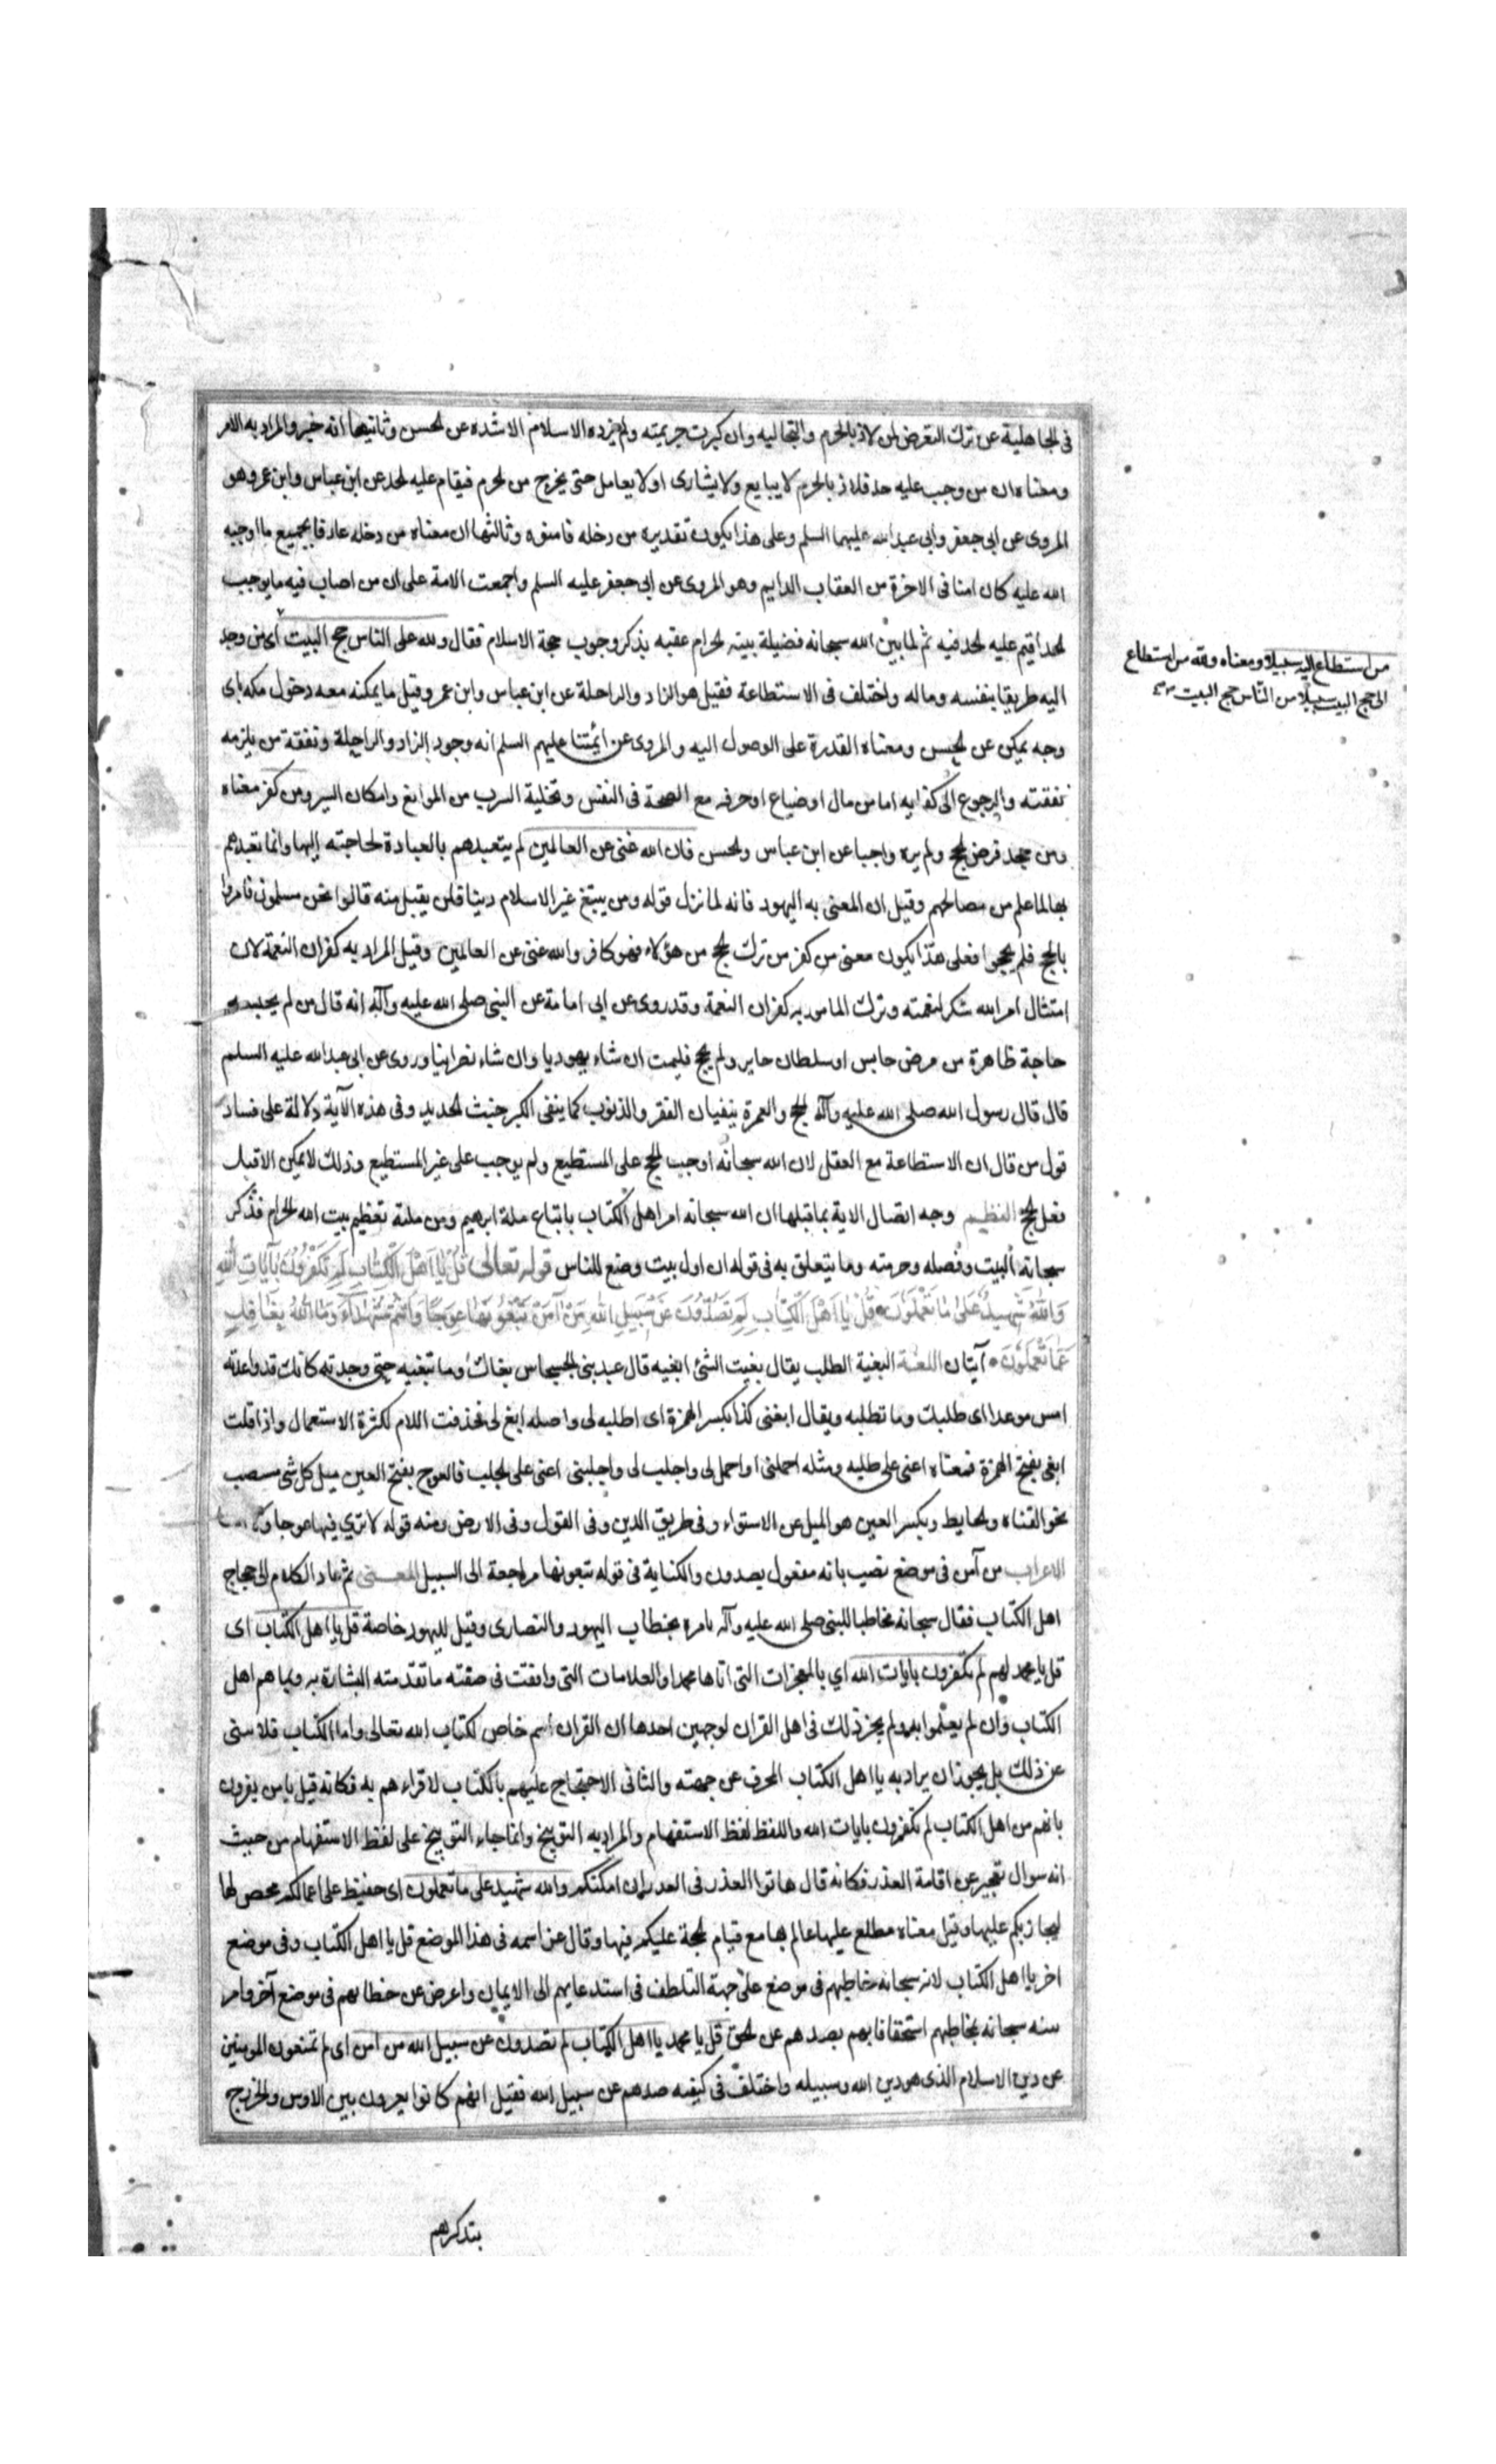 فى الجاهلية عن ترك التعرض لمن لاذ بالحرم والتجا اليه وان كبرت جريمته ولم يزده الاسلام الا شده عن الحسن وثانيها انه خبر والمراد به الامر
ومعناه ان من وجب عليه حد فلاذ بالحرم لا يبايع ولا يشارى اولا يعامل حتى يخرج من الحرم فيقام عليه الحد عن ابن عباس وابن عمر وهو
المروى عن ابى جعفر وابى عبد الله عليهما السلم وعلى هذا يكون تقديره من دخله فامنوه وثالثها ان معناه من دخله عارفا بجميع ما اوجبه
الله عليه كان امنا فى الاخرة من العقاب الدايم وهو المروى عن ابى جعفر عليه السلم واجمعت الامة على ان من اصاب فيه ما يوجب
الحد اقيم عليه الحد فيه ثم لما بين الله سبحانه فضيلة بيته الحرام عقبه بذكر وجوب حجة الاسلام فقال ولله على الناس حج البيت اى من وجد
من استطاع اليه سبيلا ومعناه ولله من استطاع
الى حج البيت سبيلا من الناس حج البيت
اليه طريقا بنفسه وماله واختلف فى الاستطاعة فقيل هو الزاد والراحلة عن ابن عباس وابن عمر وقيل ما يمكنه معه دخول مكه باى
وجه يمكن عن الحسن ومعناه القدرة على الوصول اليه والمروى عن ائمتنا عليهم السلم انه وجود الزاد والراحلة ونفقة من يلزمه
نفقته والرجوع الى كفايه اما من مال او ضياع او حرفه مع الصحة فى النفس وتخلية السرب من الموانع وامكان السير ومن كفر معناه
ومن جحد فرض الحج ولم يره واجبا عن ابن عباس والحسن فان الله غنى عن العالمين لم يتعبدهم بالعبادة لحاجته اليها وانما تعبدهم
بها لما علم من مصالحهم وقيل ان المعنى به اليهود فانه لما نزل قوله ومن يبتغ غير الاسلام دينا فلن يقبل منه قالوا نحن مسلمون فامروا
بالحج فلم يحجوا فعلى هذا يكون معنى من كفر من ترك الحج من هؤلاء فهو كافر والله غنى عن العالمين وقيل المراد به كفران النعمة لان
امتثال امر الله شكر لنعمته وترك المامور به كفران النعمة وقد روى عن ابى امامة عن النبى صلى الله عليه وآله انه قال من لم يحبسه
حاجة ظاهرة من مرض حابس او سلطان جاير ولم يحج فليمت ان شاء يهوديا وان شاء نصرانيا وروى عن ابى عبد الله عليه السلم
قال قال رسول الله صلى الله عليه وآله الحج والعمرة ينفيان الفقر والذنوب كما ينفى الكير خبث الحديد وفى هذه الآية دلالة على فساد
قول من قال ان الاستطاعة مع الفعل لان الله سبحانه اوجب الحج على المستطيع ولم يوجب على غير المستطيع وذلك لا يمكن الا قبل
فعل الحج النظيم وجه اتصال الاية بما قبلها ان الله سبحانه امر اهل الكتاب باتباع ملة ابرهيم ومن ملته تعظيم بيت الله الحرام فذكر
سبحانه البيت وفضله وحرمته وما يتعلق به فى قوله ان اول بيت وضع للناس قوله تعالى قُلْ يَا اَهْلَ الْكِتَابِ لِمَ تَكْفُرُونَ بِآيَاتِ اللهِ
وَاللهُ شَهِيدٌ عَلَى مَا تَعْمَلُونَ قُلْ يَا اَهْلَ الْكِتَابِ لِمَ تَصُدُّونَ عَنْ سَبِيلِ اللهِ مَنْ آمَنَ تَبْغُونَهَا عِوَجًا وَاَنْتُمْ شُهَدَاءُ وَمَا اللهُ بِغَافِلٍ
عَمَّا تَعْمَلُونَ آيتان اللغة البغية الطلب يقال بغيت الشئ ابغيه قال عبد بنى الحسحاس بغاك وما تبغيه حتى وجدته كانك قد واعدته
امس موعدا اى طلبك وما تطلبه ويقال ابغنى كذا بكسر الهمزة اى اطلبه لى واصله ابغ لى فحذفت اللام لكثرة الاستعمال واذا قلت
ابغنى بفتح الهمزة فمعناه اعنى على طلبه ومثله احملنى او احمل لى واجلب لى واجلبنى اعنى على الجلب فالعوج بفتح العين ميل كل شى منتصب
نحو القناه والحايط وبكسر العين هو الميل عن الاستواء وفى طريق الدين وفى القول وفى الارض ومنه قوله لا ترى فيها عوجا ولا امتا
الاعراب من آمن فى موضع نصب بانه مفعول يصدون والكناية فى قوله تبغونها مراجعة الى السبيل المعنى ثم عاد الكلام الى حجاج
اهل الكتاب فقال سبحانه مخاطبا للنبى صلى الله عليه وآله يامره بخطاب اليهود والنصارى وقيل لليهود خاصة قل يا اهل الكتاب اى
قل يا محمد لهم لم تكفرون بايات الله اي بالمعجزات التى اتاها محمدا والعلامات التى وافقت فى صفته ما تقدمته البشارة به وسماهم اهل
الكتاب وان لم يعلموا به ولم يجز ذلك فى اهل القران لوجهين احدها ان القران اسم خاص لكتاب الله تعالى واما الكتاب فلا ينبى
عن ذلك بل يجوز ان يراد به يا اهل الكتاب المحرف عن جهته والثانى الاحتجاج عليهم بالكتاب لاقراءهم به فكانه قيل يا من يقرون
بانهم من اهل الكتاب لم تكفرون بايات الله واللفظ لفظ الاستفهام والمراد به التوبيخ وانما جاء التوبيخ على لفظ الاستفهام من حيث
انه سوال تعجيز عن اقامة العذر فكانه قال هاتوا العذر فى العدر ان امكنكم والله شهيد على ما تعملون اى حفيظ على اعمالكم محص لها
ليجازيكم عليها وقيل معناه مطلع عليها عالم بها مع قيام الحجة عليكم فيها وقال عز اسمه فى هذا الموضع قل يا اهل الكتاب وفى موضع
اخر يا اهل الكتاب لانه سبحانه خاطبهم فى موضع على جهة التلطف فى استدعايهم الى الايمان واعرض عن خطابهم فى موضع آخر وامر
سنه سبحانه بخاطبهم استخفافا بهم بصدهم عن الحق قل يا محمد يا اهل الكتاب لم تصدون عن سبيل الله من امن اى لم تمنعون المومنين
عن دين الاسلام الذى هو دين الله وسبيله واختلف فى كيفيه صدهم عن سبيل الله فقيل انهم كانوا يغرون بين الاوس والخزرج
بتذكرهم